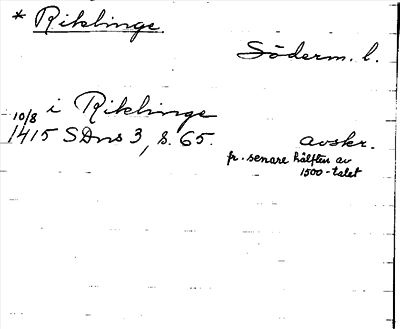 * Riklinge.
Söderm. l.
i Riklinge
10/8
1415 SDns 3, s. 65. avskr.
fr. senare hälften av
1500-talet